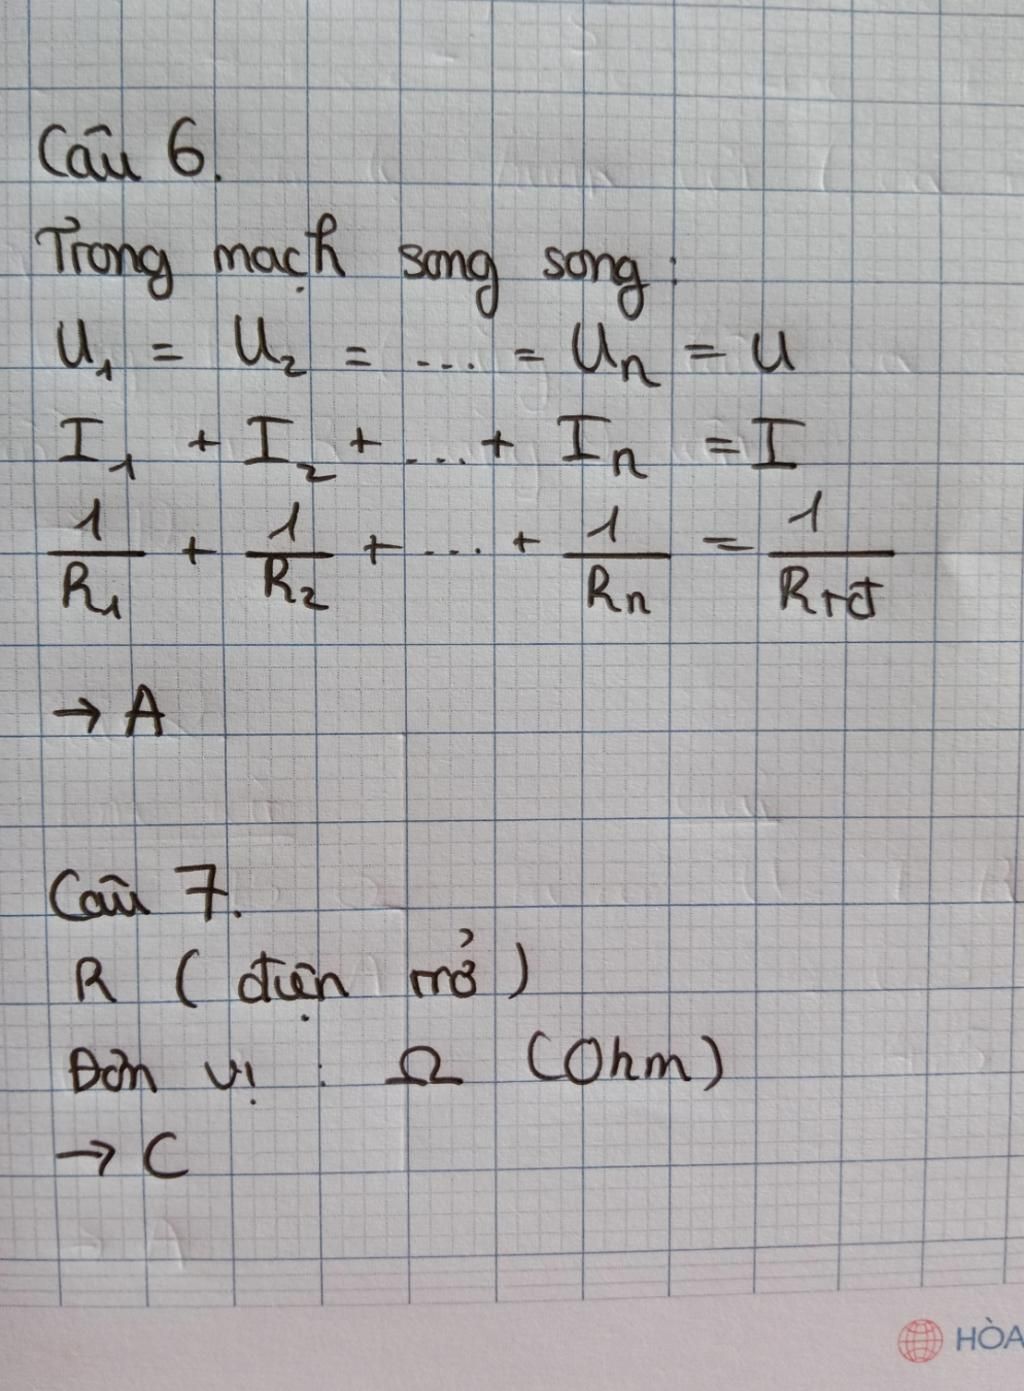 Câu 6.
Trong mạch song song:
U₁ = U₂ = ... = Uₙ = U
I₁ + I₂ + ... + Iₙ = I
1/R₁ + 1/R₂ + ... + 1/Rₙ = 1/Rtđ
→ A
Câu 7.
R (điện trở)
Đơn vị : Ω (Ohm)
→ C
HÒA